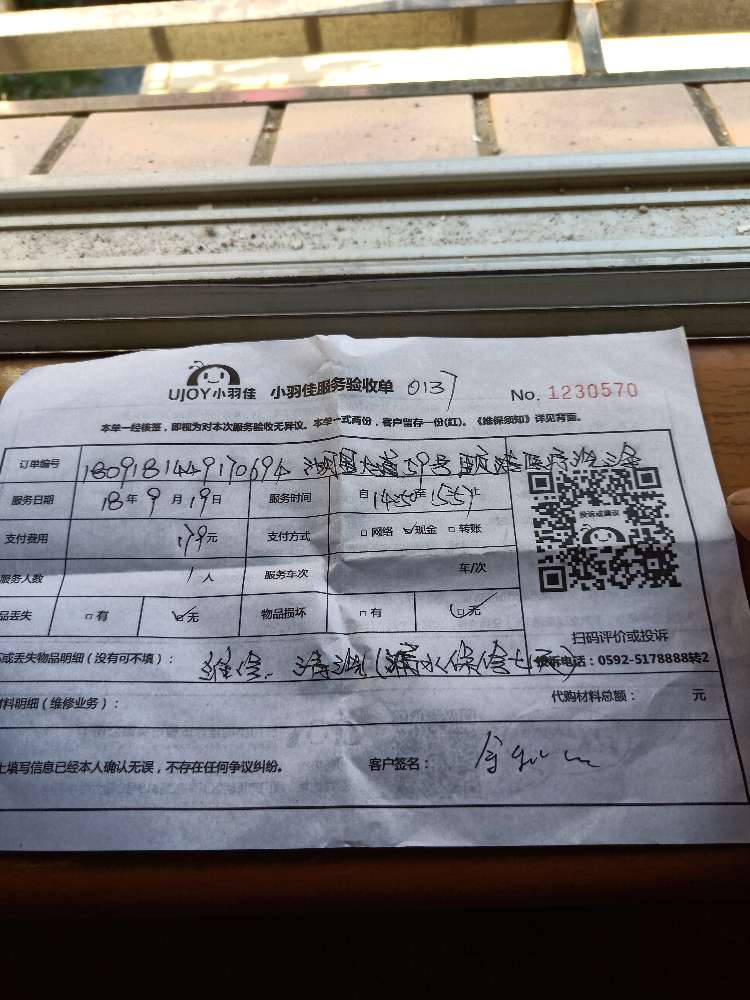 UJOY小羽佳 小羽佳服务验收单 0137 No. 1230570
本单一经核签，即视为对本次服务验收无异议。本单一式两份，客户留存一份(红)。《维保须知》详见背面。
订单编号 1809181449170694
服务日期 18年9月19日 服务时间 自1450至1557止
支付费用 179元 支付方式 □网络 ☑现金 □转账
投诉或建议
服务人数 1人 服务车次 车/次
品丢失 □有 ☑无 物品损坏 □有 ☑无
扫码评价或投诉
或丢失物品明细（没有可不填）： 维修. 清洗(漏水保修 投诉电话：0592-5178888转2
材料明细（维修业务）： 代购材料总额： 元
上填写信息已经本人确认无误，不存在任何争议纠纷。 客户签名：